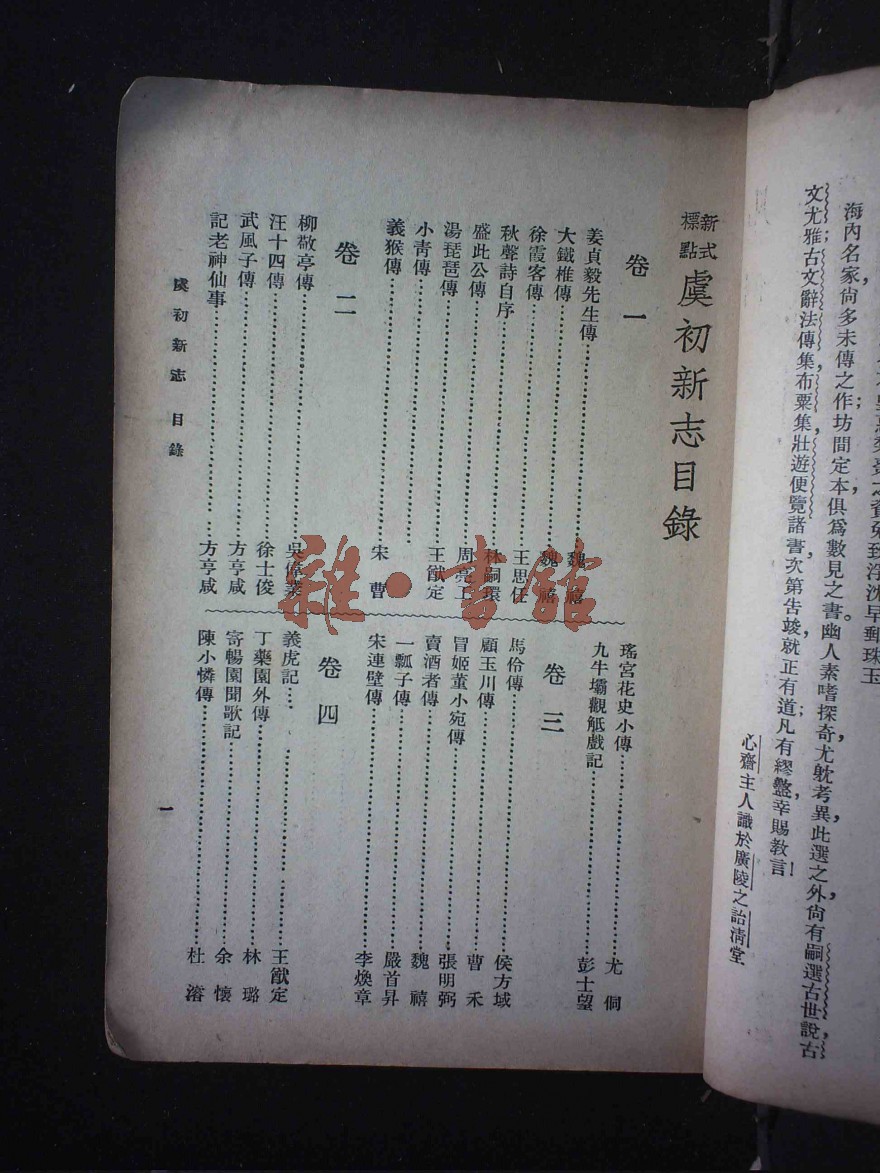 海內名家,尙多未傳之作;坊間定本,俱爲數見之書。幽人素嗜探奇,尤躭考異,此選之外,尙有嗣選古世說古
文尤雅;古文辭法傳集,布粟集,壯遊便覽諸書,次第吿竣,就正有道,凡有繆盭,幸賜教言!
心齋主人識於廣陵之詒淸堂
新式標點 虞初新志目錄
卷一
姜貞毅先生傳……魏禧
大鐵椎傳……魏禧
徐霞客傳……王思任
秋聲詩自序……林嗣環
盛此公傳……周亮工
湯琵琶傳……王猷定
小靑傳……
義猴傳……宋曹
卷二
柳敬亭傳……吳偉業
汪十四傳……徐士俊
武風子傳……方亨咸
記老神仙事……方亨咸
瑤宮花史小傳……尤侗
九牛壩觀觝戲記……彭士望
卷三
馬伶傳……侯方域
顧玉川傳……曹禾
冒姬董小宛傳……張明弼
賣酒者傳……魏禧
一瓢子傳……嚴首昇
宋連璧傳……李煥章
卷四
義虎記……王猷定
丁藥園外傳……林璐
寄暢園聞歌記……余懷
陳小憐傳……杜濬
虞初新志 目錄
一
雜·書館